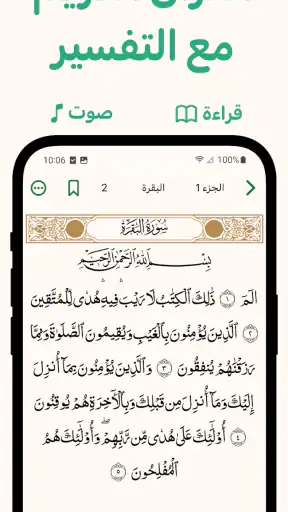 مع التفسير
قراءة
صوت
10:06
100%
الجزء 1
البقرة
2
سُورَةُ البَقَرَةِ
بِسْمِ اللَّهِ الرَّحْمَٰنِ الرَّحِيمِ
الٓمٓ ١ ذَٰلِكَ ٱلْكِتَٰبُ لَا رَيْبَ فِيهِ هُدًى لِّلْمُتَّقِينَ
٢ ٱلَّذِينَ يُؤْمِنُونَ بِٱلْغَيْبِ وَيُقِيمُونَ ٱلصَّلَوٰةَ وَمِمَّا
رَزَقْنَٰهُمْ يُنفِقُونَ ٣ وَٱلَّذِينَ يُؤْمِنُونَ بِمَآ أُنزِلَ
إِلَيْكَ وَمَآ أُنزِلَ مِن قَبْلِكَ وَبِٱلْءَاخِرَةِ هُمْ يُوقِنُونَ
٤ أُو۟لَٰٓئِكَ عَلَىٰ هُدًى مِّن رَّبِّهِمْ ۖ وَأُو۟لَٰٓئِكَ هُمُ
ٱلْمُفْلِحُونَ ٥